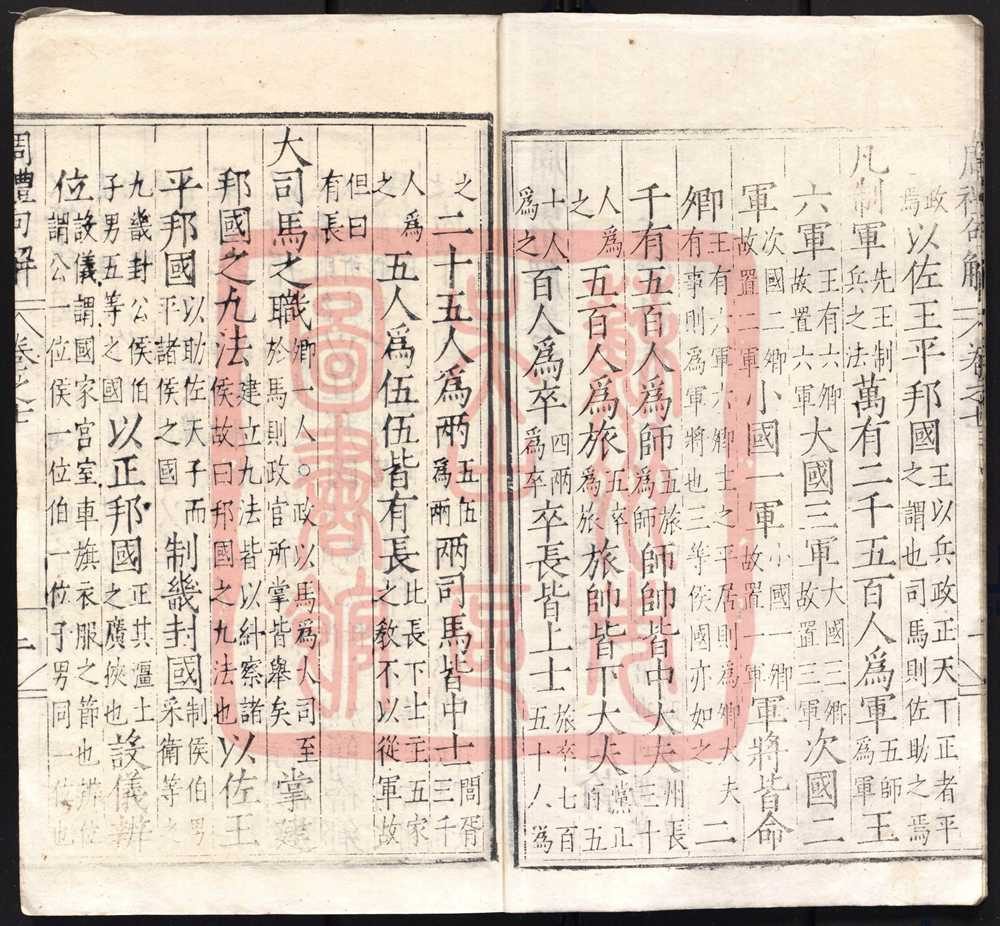 周禮句解 卷之七 一
政焉以佐王平邦國王以兵政正天下正者平之謂也司馬則佐助之焉
凡制軍先王制兵之法萬有二千五百人爲軍五師爲軍王
六軍王有六卿故置六軍大國三軍大國三卿故置三軍次國二
軍次國二卿故置二軍小國一軍小國一卿故置一軍軍將皆命
卿王有六軍六卿主之平居則爲卿大夫有事則爲軍將也三等侯國亦如之二
千有五百人爲師五旅爲師師帥皆中大夫州長三十
人爲之五百人爲旅五卒爲旅旅帥皆下大夫黨正百五
十人爲之百人爲卒四兩爲卒卒長皆上士旅卒七百五十人爲
之二十五人爲兩五伍爲兩兩司馬皆中士閭胥三千
人爲之五人爲伍伍皆有長比長下士主五家之教不以從軍故
但曰有長
大司馬之職卿一人○政以馬爲人司至於馬則政官所掌皆舉矣掌建
邦國之九法建立九法皆以糾察諸侯故曰邦國之九法也以佐王
平邦國以助佐天子而平諸侯之國制畿封國制侯伯男采衛等之
九畿封公侯伯子男五等之國以正邦國正其疆土之廣狹也設儀辨
位設儀謂國家宮室車旗衣服之節也辨位謂公一位侯一位伯一位子男同一位也
周禮句解 卷之七 二
圖書館